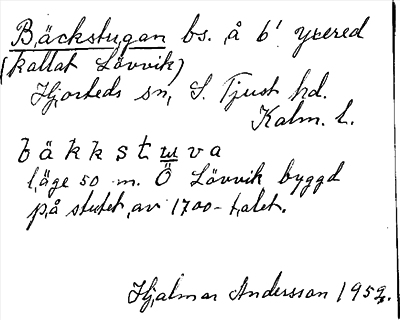 Bäckstugan bs. å 6¹ Yxered
(kallat Lövvik)
Hjorteds sn, S. Tjust hd.
Kalm. l.
bäkkstuva
läge 50 m. Ö Lövvik byggd
på slutet av 1700-talet.
Hjalmar Andersson 1952.